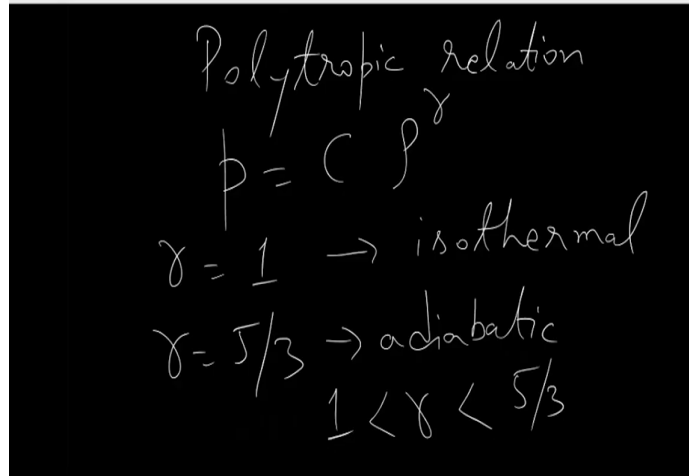 Polytropic relation
p = C ρ^γ
γ = 1 → isothermal
γ = 5/3 → adiabatic
1 < γ < 5/3